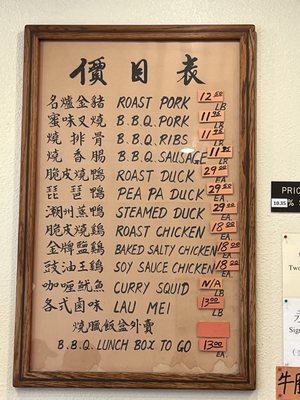 價目表
名爐金豬 ROAST PORK 12.50 LB
蜜味叉燒 B.B.Q. PORK 11.95 LB
燒排骨 B.B.Q. RIBS 11.95 LB
燒香腸 B.B.Q. SAUSAGE 11.95 LB
脆皮燒鴨 ROAST DUCK 29.00 EA
琵琶鴨 PEA PA DUCK 29.50 EA
潮州蒸鴨 STEAMED DUCK 29.00 EA
脆皮燒鷄 ROAST CHICKEN 18.00 EA.
金牌鹽鷄 BAKED SALTY CHICKEN 18.00 EA
豉油王鷄 SOY SAUCE CHICKEN 18.00 EA.
咖喱魷魚 CURRY SQUID N/A LB
各式鹵味 LAU MEI 13.00 LB
燒臘飯盒外賣
B.B.Q. LUNCH BOX TO GO 13.00 EA.
PRIC
10.35 % S
Two
Sign
牛